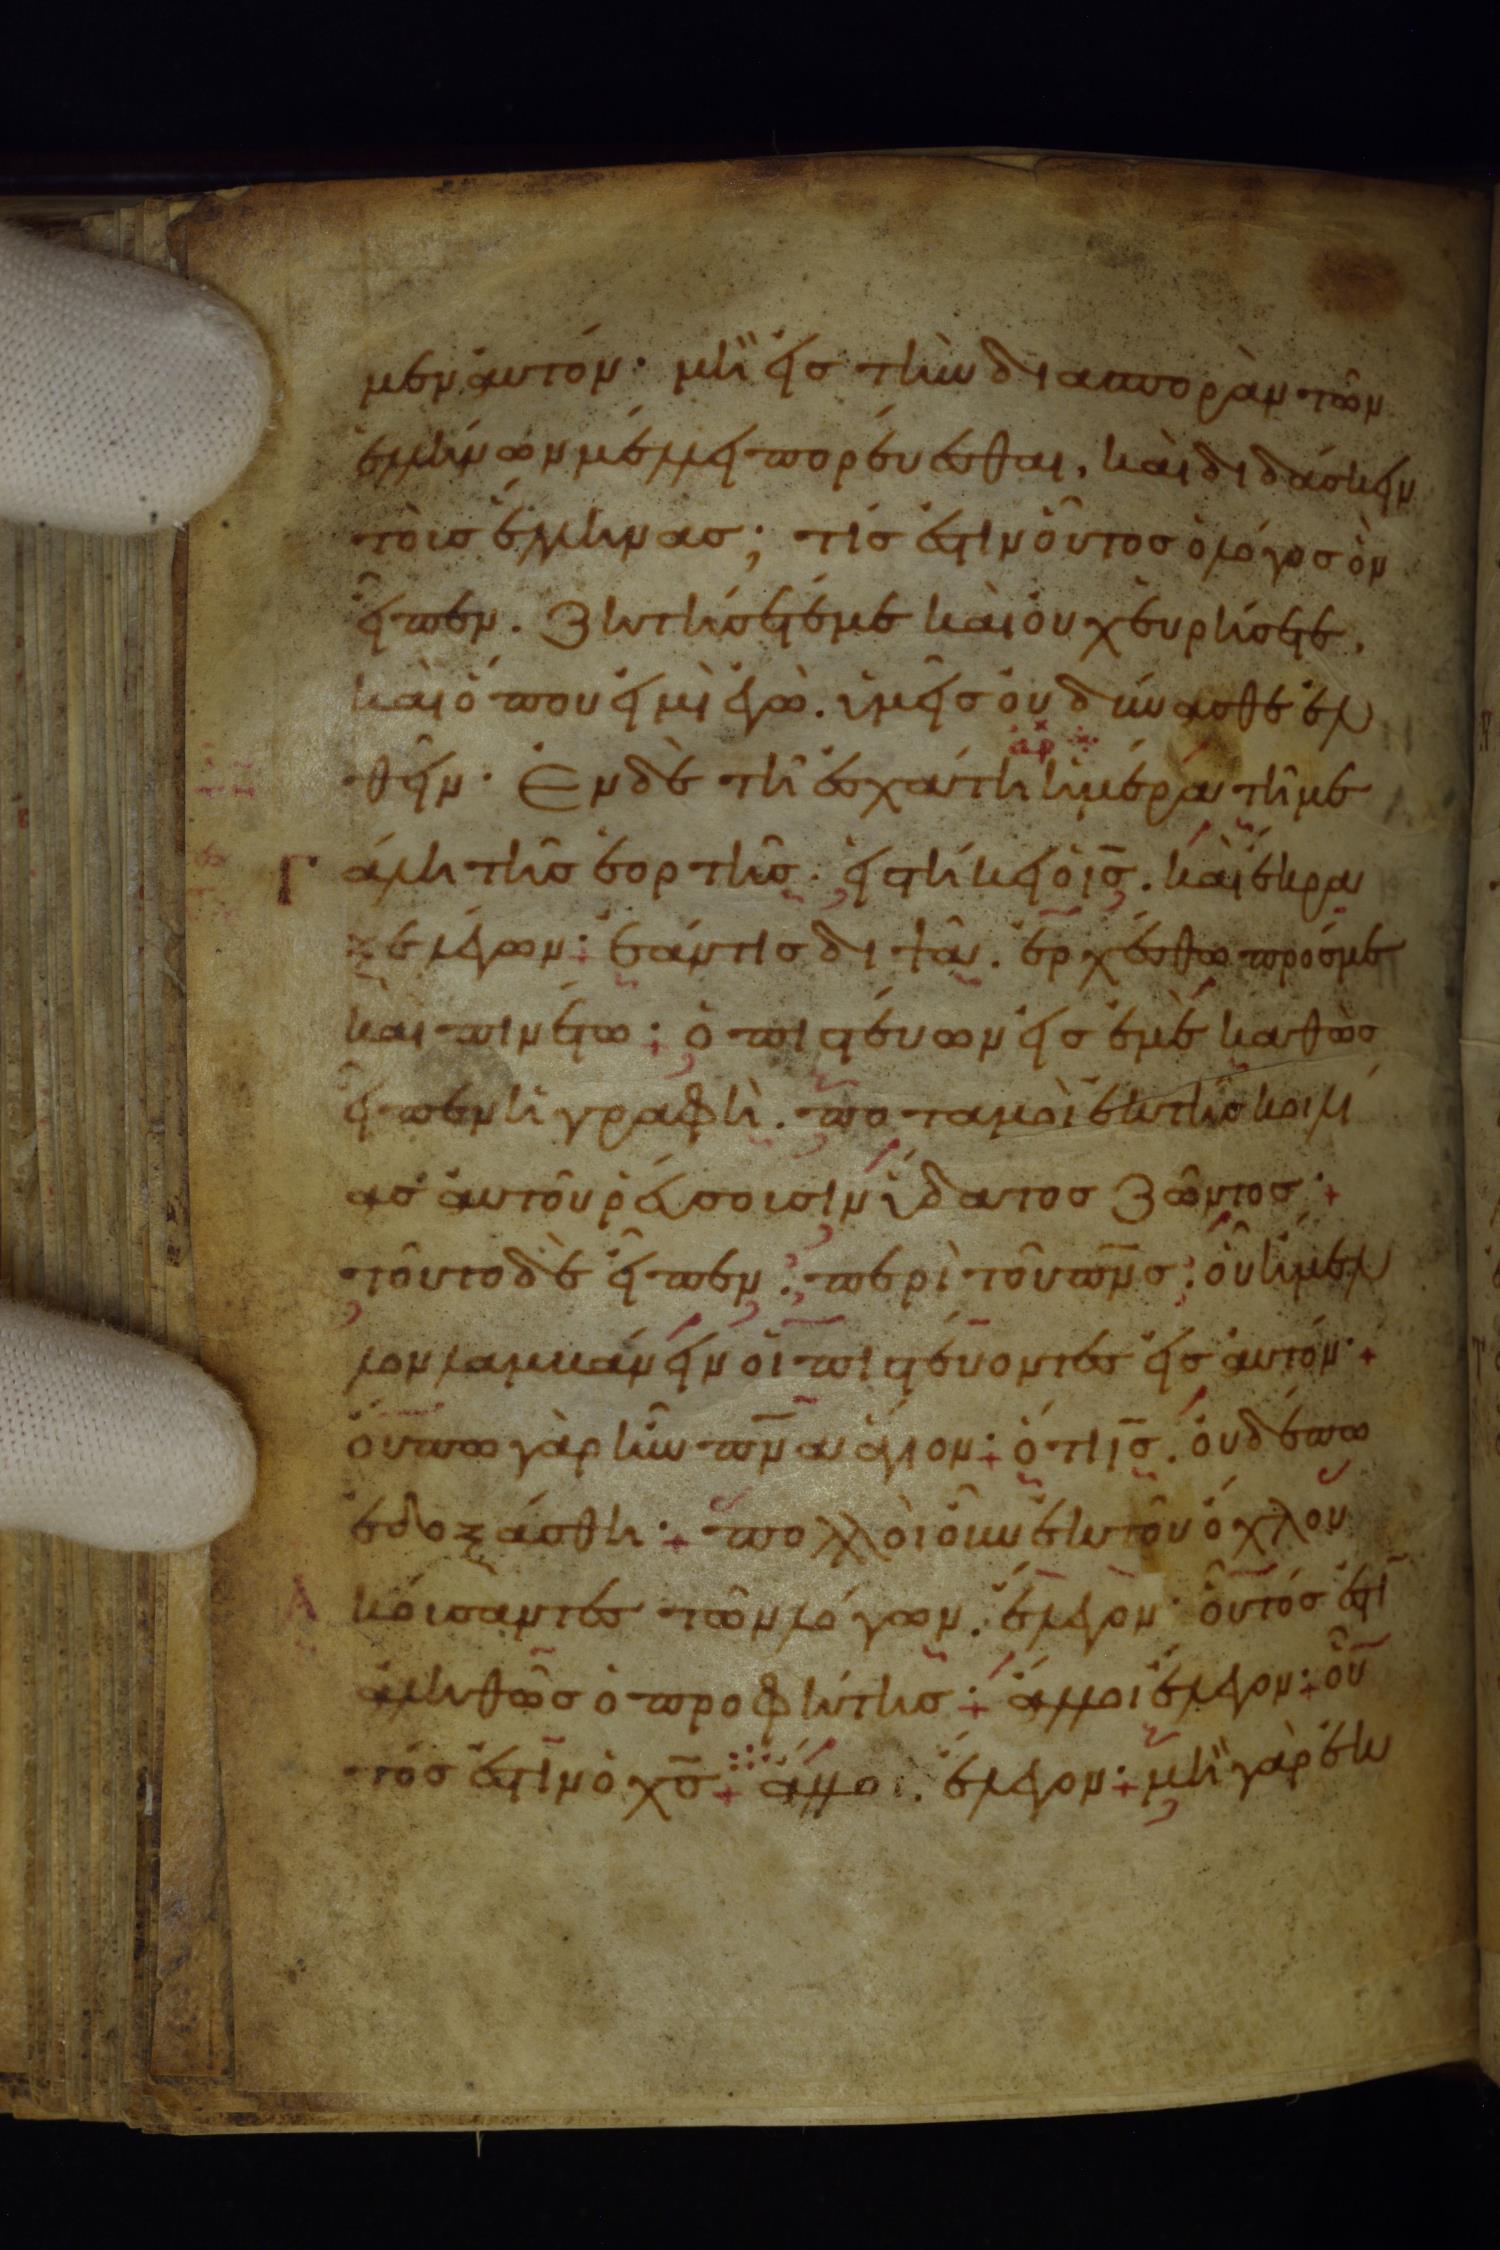 μεν αυτόν· μὴ εἰσ τὴν διασπορὰν τῶν
ἑλλήνων μέλλει πορέυεσθαι, καὶ διδάσκειν
τοὶσ ἕλληνασ; τίσ ἐστιν ὁῦτοσ ὁ λόγοσ ὃν
εἶπεν. Ζητήσετέ με καὶ ὀυχ ἑυρήσετε,
καὶ ὅπου εἰμὶ ἐγὼ. ὑμεῖσ ὀυ δύνασθε ἐλ
θεῖν· Ἐν δὲ τῆ ἐσχάτη ἡμέρα τῆ με
γάλη τῆσ ἑορτῆσ. εἱστήκει ὁ ισ̅. καὶ ἔκρα
ξε λέγων· ἐάν τισ διψᾶ. ἐρχέσθω πρόσ με
καὶ πινέτω· ὁ πιστέυων εἰσ ἐμὲ καθὼσ
εἶπεν ἡ γραφὴ. ποταμοὶ ἐκ τῆσ κοιλί
ασ ἀυτοῦ ῥέυσοισιν ὕδατοσ ζῶντοσ·
τοῦτο δὲ εἶπεν· περὶ τοῦ πν̅σ· οὗ ἤμελ
λον λαμβάνειν ὁι πιστέυοντεσ εἰσ ἀυτόν·
όυπω γὰρ ἦν πν̅α ἅγιον· ὅτι ισ̅. ὀυδέπω
ἐδοξάσθη· πολλοὶ ὀῦν ἐκ τοῦ όχλου
ἀκόισαντεσ τῶν λόγων. ἔλεγον· ὁῦτόσ ἐστι
ἀληθῶσ ὁ προφήτησ· άλλοι ἔλεγον· ὁῦ
τόσ ἐστιν ὁ χσ̅· άλλοι. ἔλεγον· μὴ γὰρ ἐκ